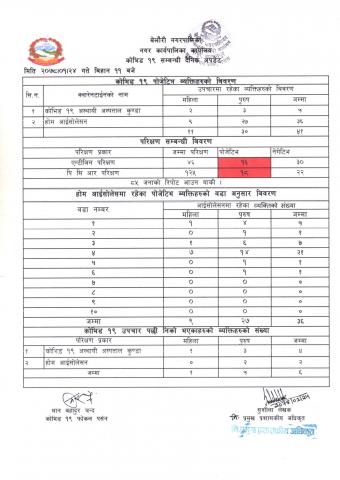 बेलौरी नगरपालिका
नगर कार्यपालिका कार्यालय
कोभिड १९ सम्बन्धी दैनिक अपडेट
मिति २०७८/०१/२४ गते बिहान ११ बजे
कोभिड १९ पोजेटिभ व्यक्तिहरुको विवरण
सि.न. क्वारेनटाईनको नाम उपचारमा रहेका व्यक्तिहरुको संख्या
महिला पुरुष जम्मा
१ कोभिड १९ अस्थायी अस्पताल कुण्डा २ ३ ५
२ होम आईसोलेसन ९ २७ ३६
११ ३० ४१
परिक्षण सम्बन्धी विवरण
परिक्षण प्रकार जम्मा परिक्षण पोजेटिभ नेगेटिभ
एन्टीजिन परिक्षण ४६ १६ ३०
पि सि आर परिक्षण १२५ १८ २२
८५ जनाको रिपोर्ट आउन बाकी ।
होम आईसोलेसमा रहेका पोजेटिभ व्यक्तिहरुको वडा अनुसार विवरण
वडा नम्बर आईसोलेसनमा रहेका व्यक्तिको संख्या
महिला पुरुष जम्मा
१ १ ४ ५
२ ० १ १
३ १ ६ ७
४ ७ १४ २१
५ ० १ १
६ ० १ १
७ ० ० ०
८ ० ० ०
९ ० ० ०
१० ० ० ०
जम्मा ९ २७ ३६
कोभिड १९ उपचार पश्ची निको भएकाहरुको व्यक्तिहरुको संख्या
परिक्षण प्रकार महिला पुरुष जम्मा
१ कोभिड १९ अस्थायी अस्पताल कुण्डा १ ३ ४
२ होम आईसोलेसन ० २ २
जम्मा १ ५ ६
मान बहादुर चन्द
कोभिड १९ फोकल पर्सन
सुशीला लेखक
नि. प्रमुख प्रशासकीय अधिकृत
नि. प्रमुख प्रशासकीय अधिकृत